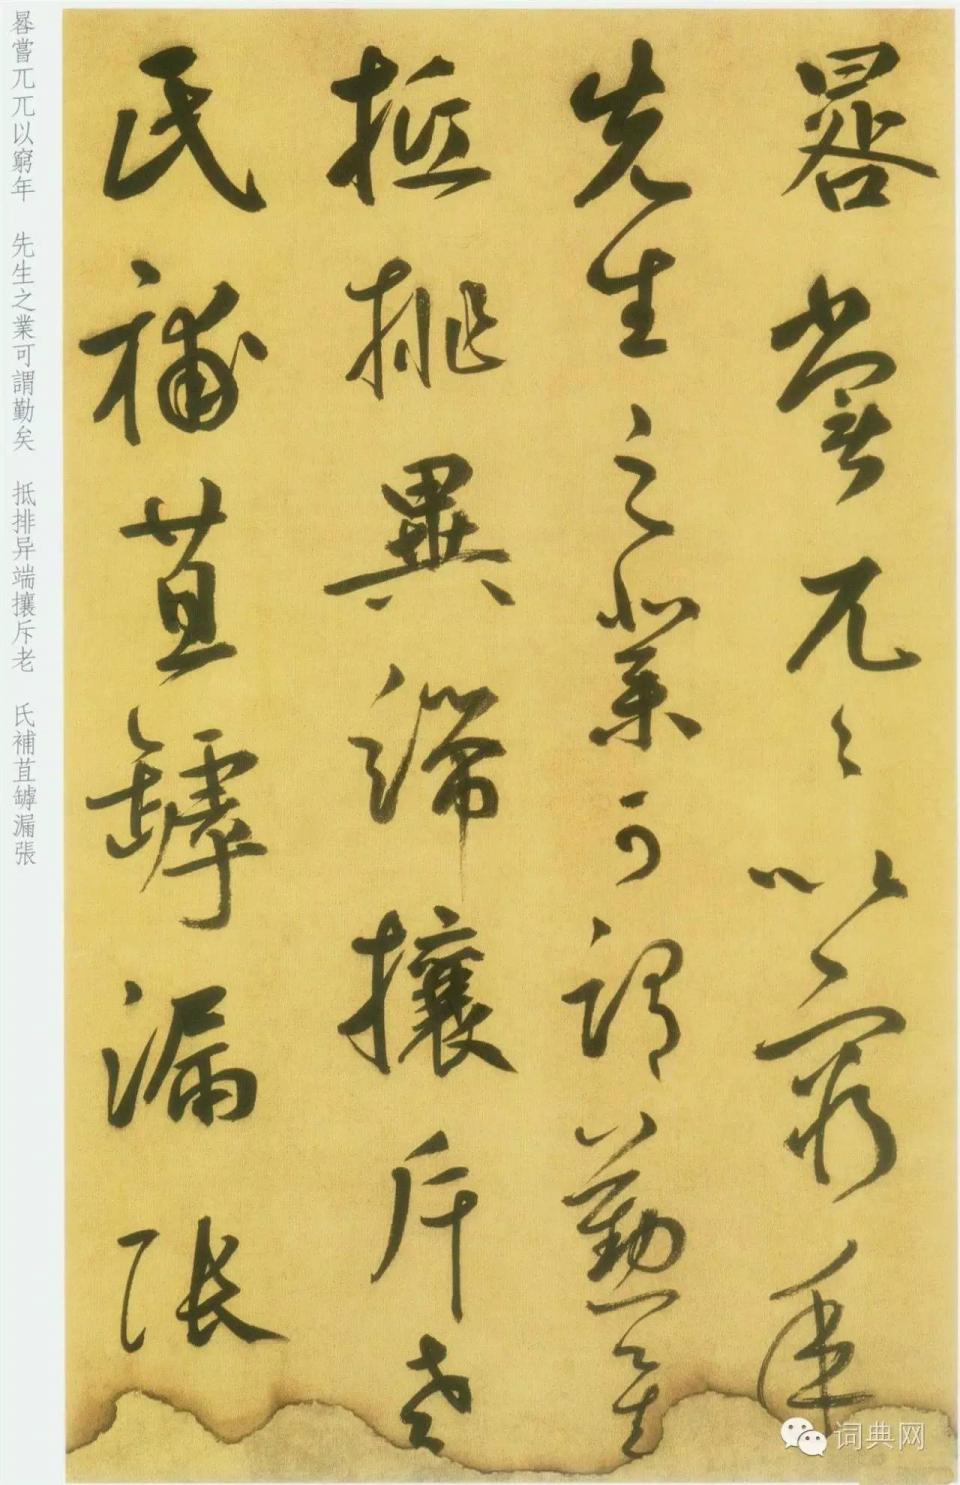 晷嘗兀〻以窮年
先生之業可謂勤矣
抵排異端攘斥老
氏補苴罅漏張
晷嘗兀兀以窮年　先生之業可謂勤矣　抵排异端攘斥老　氏補苴罅漏張
词典网